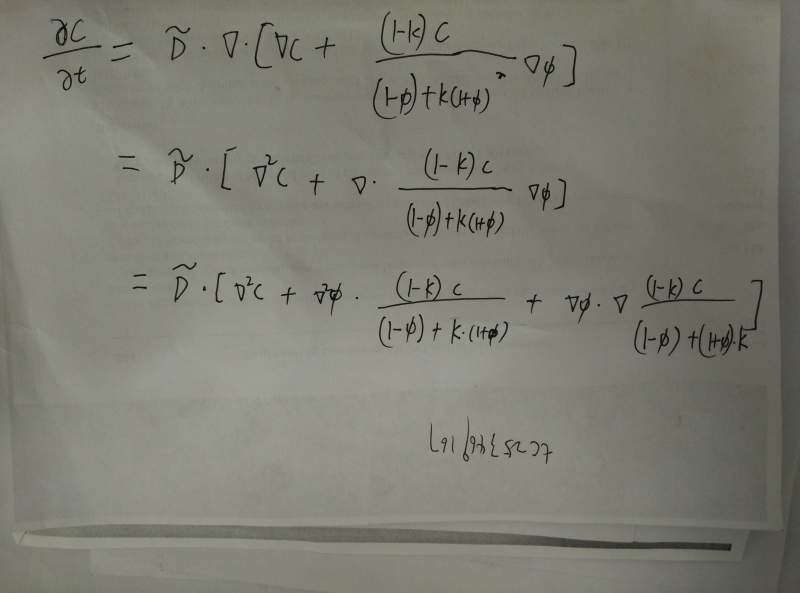 ∂C/∂t = D̃ · ∇·[∇C + (1-k)C / ((1-ϕ)+k(1+ϕ)) ∇ϕ]
= D̃ · [∇²C + ∇· (1-k)C / ((1-ϕ)+k(1+ϕ)) ∇ϕ]
= D̃ · [∇²C + ∇²ϕ · (1-k)C / ((1-ϕ)+k·(1+ϕ)) + ∇ϕ·∇ (1-k)C / ((1-ϕ)+(1+ϕ)·k)]